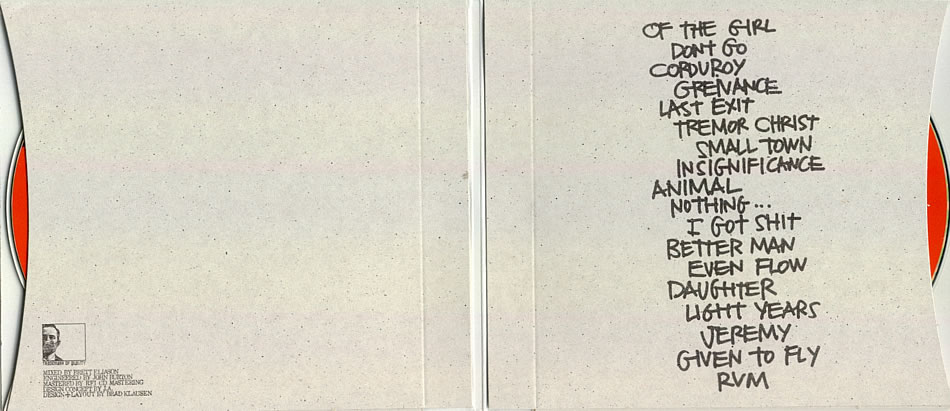 TRADEMARK OF QUALITY
MIXED BY BRETT ELIASON
ENGINEERED BY JOHN BURTON
MASTERED BY RFI CD MASTERING
DESIGN CONCEPT BY J.A.
DESIGN+LAYOUT BY BRAD KLAUSEN
OF THE GIRL
DONT GO
CORDUROY
GREIVANCE
LAST EXIT
TREMOR CHRIST
SMALL TOWN
INSIGNIFICANCE
ANIMAL
NOTHING...
I GOT SHIT
BETTER MAN
EVEN FLOW
DAUGHTER
LIGHT YEARS
JEREMY
GIVEN TO FLY
RVM